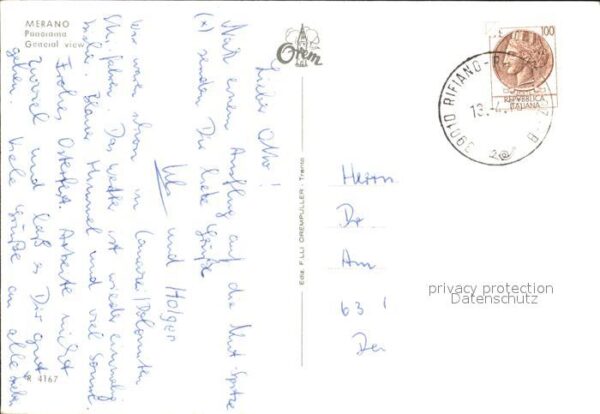 MERANO
Panorama
General view
Orem
100
REPVBBLICA
ITALIANA
39010 RIFIANO-
13.4.
BZ
Lieber Mo!
Nach einem Ausflug auf die Mut-Spitze
(x) senden Dir liebe Grüße
Uls und Holger
Wir waren schon in Canazei/Dolomiten
Ski fahren. Das Wetter ist wieder einmalig
Blauer Himmel und viel Sonne.
Frohes Osterfest. Arbeite nicht
zuviel und laß es Dir gut
gehen. Viele Grüße an alle
R 4167
Ediz. F.LLI OREMPULLER - Trento
Herrn
Dr
Am
63
privacy protection
Datenschutz